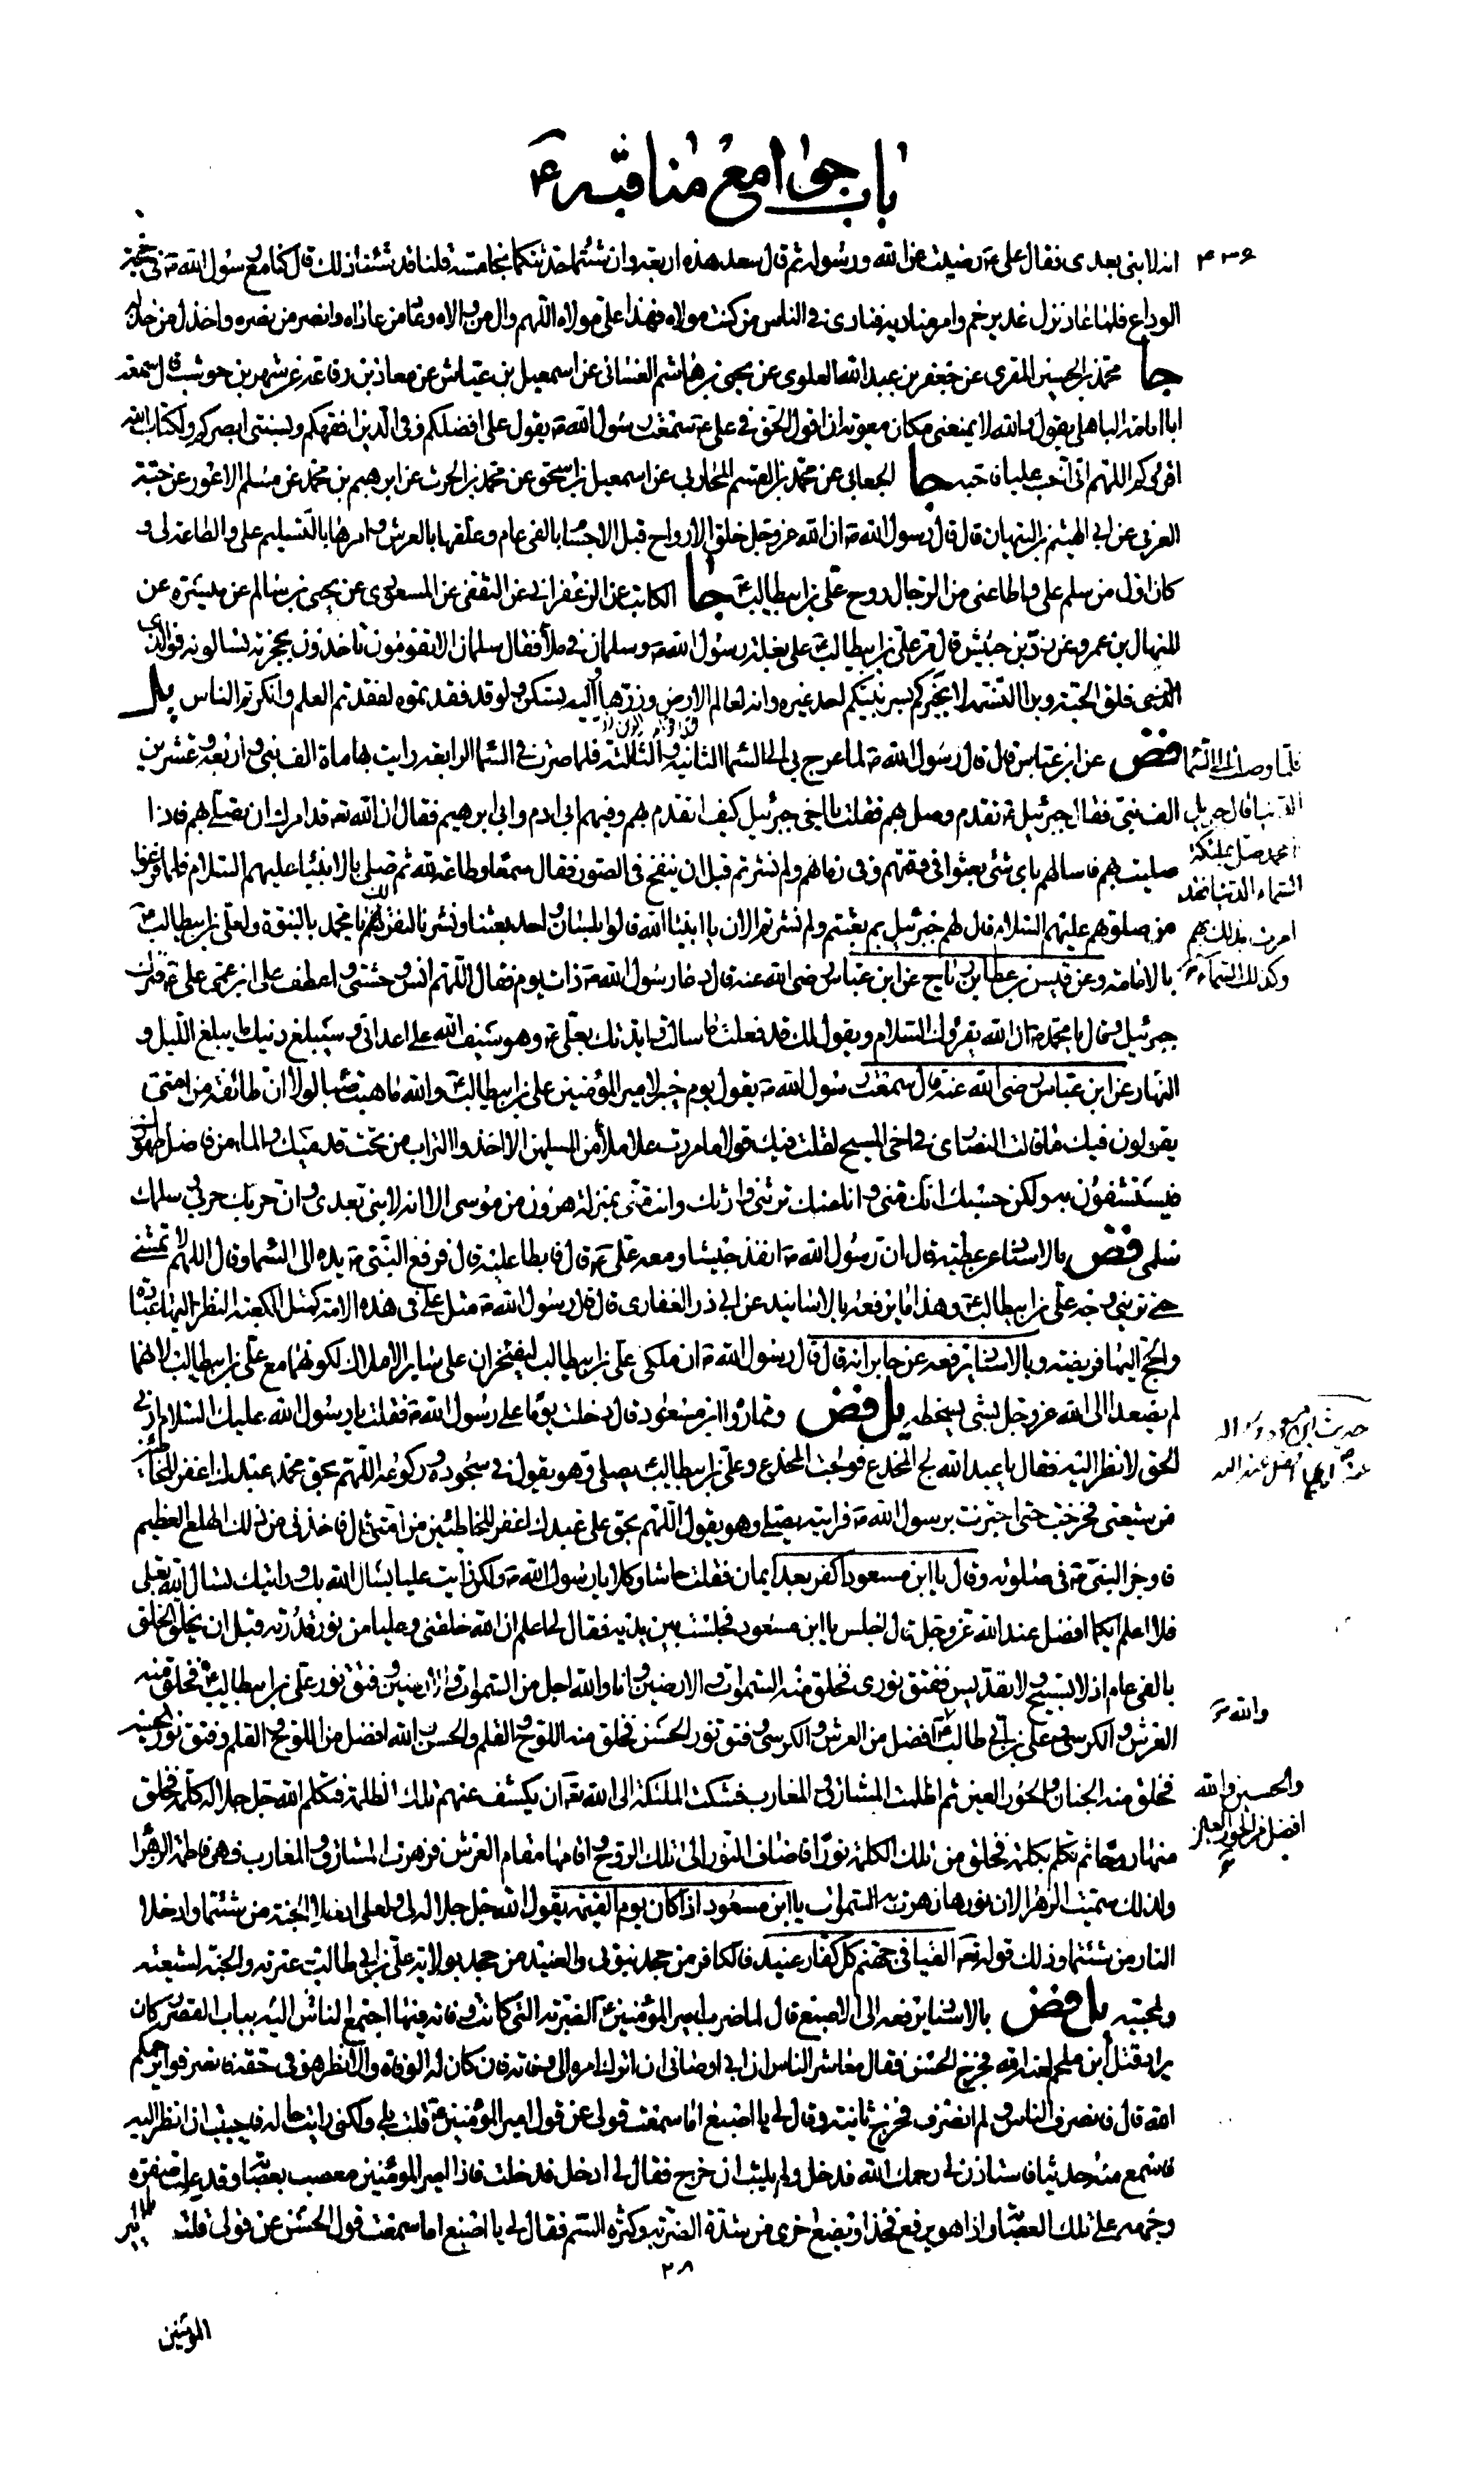 باب جوامع مناقبه ع
۴۳۶
انه لا نبي بعدي فقال علي ع رضيت عن الله ورسوله ثم قال سعد هذه اربعة وان شئتما حدثتكما بخامسة قلنا قد شئنا ذلك قال كنا مع رسول الله ص في حجة
الوداع فلما عاد نزل غدير خم وامر مناديه فنادى في الناس من كنت مولاه فهذا علي مولاه اللهم وال من والاه وعاد من عاداه وانصر من نصره واخذل من خذله
جا محمد بن الحسين المقري عن جعفر بن عبد الله العلوي عن يحيى بن هاشم الغساني عن اسمعيل بن عياش عن معاذ بن رفاعة عن شهر بن حوشب قال سمعت
ابا امامة الباهلي يقول والله لا يمنعني مكان معوية ان اقول الحق في علي ع سمعت رسول الله ص يقول علي افضلكم وفي الدين افقهكم وبسنتي ابصركم ولكتاب الله
اقرئكم اللهم اني احب عليا فاحبه جا الجعابي عن محمد بن القسم المحاربي عن اسمعيل بن اسحق عن محمد بن الحرث عن ابرهيم بن محمد عن مسلم الاعور عن حبة
العرني عن ابي الهيثم بن التيهان قال قال رسول الله ص ان الله عز وجل خلق الارواح قبل الاجسا بالفي عام وعلقها بالعرش وامرها بالتسليم علي والطاعة لي و
كان اول من سلم علي واطاعني من الرجال روح علي بن ابيطالب ع جا الكاتب عن الزعفراني عن الثقفي عن المسعودي عن يحيى بن سالم عن ميسرة عن
المنهال بن عمرو عن زر بن حبيش قال مر علي بن ابيطالب ع على بغلة رسول الله ص وسلمان في ملا فقال سلمان الا تقومون تاخذون بحجزته تسالونه فوالذي
فلق الحبة وبرا النسمة لا يخبركم بسر نبيكم احد غيره وانه لعالم الارض وزرها واليه تسكن ولو قد فقدتموه لفقدتم العلم وانكرتم الناس يل
فض عن ابن عباس قال قال رسول الله ص لما عرج بي الى السما الثانية والثالثة فلما صرت في السما الرابعة رايت بها ماة الف نبي واربعة وعشرين
الف نبي فقال جبرئيل ع تقدم وصل بهم فقلت يا اخي جبرئيل كيف اتقدم بهم وفيهم ابي ادم وابي ابرهيم فقال ان الله تع قد امرك ان تصلي بهم فاذا
صليت بهم فاسالهم باي شئ بعثوا في وقتهم وفي زمانهم ولم نشرتم قبل ان ينفخ في الصور فقال سمعا وطاعة لله ثم صلى بالانبيا عليهم السلام فلما فرغوا
من صلوتهم عليهم السلام قال لهم جبرئيل بم بعثتم ولم نشرتم الان يا انبيا الله قالوا بلسان واحد بعثنا ونشرنا لنقر لك يا محمد بالنبوة ولعلي بن ابيطالب ع
بالامامة وعن قيس بن عطا بن رباح عن ابن عباس رضي الله عنه قال دعا رسول الله ص ذات يوم فقال اللهم انس وحشتي واعطف على ابن عمي علي ع فنزل
جبرئيل وقال يا محمد ص ان الله يقرؤك السلام ويقول لك قد فعلت ما سالت وايدتك بعلي ع وهو سيف الله على اعدائي وسيبلغ دينك ما يبلغ الليل و
النهار عن ابن عباس رضي الله عنه قال سمعت رسول الله ص يقول يوم خيبر لامير المؤمنين علي بن ابيطالب ع والله يا لولا ان طائفة من امتي
يقولون فيك ما قالت النصارى في اخي المسيح لقلت فيك قولا ما مررت على ملا من المسلمين الا اخذوا التراب من تحت قدميك والماء من فاضل طهورك
فيستشفون به ولكن حسبك انك مني وانا منك ترثني وارثك وانت مني بمنزلة هرون من موسى الا انه لا نبي بعدي وان حربك حربي وسلمك
سلمي فض بالاسناد عن عطية قال ان رسول الله ص انفذ جيشا ومعه علي ع قال فابطا عليه قال فرفع النبي ص يده الى السما وقال اللهم لا تمتني
حتى تريني وجه علي بن ابيطالب ع وهذا ما يرفعه بالاسانيد عن ابي ذر الغفاري قال قال رسول الله ص مثل علي في هذه الامة كمثل الكعبة النظر اليها عبادة
والحج اليها فريضة وبالاسناد يرفعه عن جابر انه قال قال رسول الله ص ان ملكي علي بن ابيطالب ليفتخران على ساير الاملاك لكونهما مع علي بن ابيطالب لانهما
لم يصعدا الى الله عز وجل بشئ يسخطه يل فض ومما رواه ابن مسعود قال دخلت يوما على رسول الله ص فقلت يا رسول الله عليك السلام ارني
الحق لانظر اليه فقال يا عبد الله لج المخدع فولجت المخدع وعلي بن ابيطالب ع يصلي وهو يقول في سجوده وركوعه اللهم بحق محمد عبدك اغفر للخاطئين
من شيعتي فخرجت حتى اجتزت برسول الله ص فرايته يصلي وهو يقول اللهم بحق علي عبدك اغفر للخاطئين من امتي قال فاخذني من ذلك الهلع العظيم
فاوجز النبي ص في صلوته وقال يا ابن مسعود اكفر بعد ايمان فقلت حاشا وكلا يا رسول الله ص ولكن رايت عليا يسال الله بك ورايتك تسال الله بعلي
فلا اعلم ايكما افضل عند الله عز وجل قال اجلس يا ابن مسعود فجلست بين يديه فقال لي اعلم ان الله خلقني وعليا من نور قدرته قبل ان يخلق الخلق
بالفي عام اذ لا تسبيح ولا تقديس ففتق نوري فخلق منه السموات والارضين وانا والله اجل من السموات والارضين وفتق نور علي بن ابيطالب ع فخلق منه
العرش والكرسي وعلي بن ابي طالب ع افضل من العرش والكرسي وفتق نور الحسن فخلق منه اللوح والقلم والحسن والله افضل من اللوح والقلم وفتق نور الحسين
فخلق منه الجنان والحور العين ثم اظلمت المشارق والمغارب فشكت الملئكة الى الله تع ان يكشف عنهم تلك الظلمة فتكلم الله جل جلاله كلمة فخلق
منها روحا ثم تكلم بكلمة فخلق من تلك الكلمة نورا فاضاف النور الى تلك الروح واقامها مقام العرش فزهرت المشارق والمغارب فهي فاطمة الزهرا
ولذلك سميت الزهرا لان نورها زهرت به السموات يا ابن مسعود اذا كان يوم القيمة يقول الله جل جلاله لي ولعلي ادخلا الجنة من شئتما وادخلا
النار من شئتما وذلك قوله تع القيا في جهنم كل كفار عنيد فالكافر من جحد نبوتي والعنيد من جحد بولاية علي بن ابي طالب وعترته والجنة لشيعته
ولمحبيه يل فض بالاسناد يرفعه الى الاصبغ قال لما ضرب امير المؤمنين ع الضربة التي كانت وفاته فيها اجتمع الناس اليه بباب القصر وكان
يراد قتل ابن ملجم لعنه الله فخرج الحسن فقال معاشر الناس ان ابي اوصاني ان اترك امره الى وفاته فان كان له الوفاة والا نظر هو في حقه فانصرفوا يرحمكم
الله قال فانصرف الناس ولم انصرف فخرج ثانية وقال لي يا اصبغ اما سمعت قولي عن قول امير المؤمنين ع قلت بلى ولكني رايت حاله فاحببت ان انظر اليه
فاسمع منه حديثا فاستاذن لي رحمك الله فدخل ولم يلبث ان خرج فقال لي ادخل فدخلت فاذا امير المؤمنين معصب بعصابة وقد علت صفرة
وجهه على تلك العصابة واذا هو يرفع فخذا ويضع اخرى من شدة الضربة وكثرة السم فقال لي يا اصبغ اما سمعت قول الحسن عن قولي قلت
فلما وصلت الى السما
الدنيا قال جبريل
يا محمد صل بملئكة
السماء الدنيا فقد
امرت بذلك بهم
وكذلك السماء
حديث ابن مسعود
افضل عند الله
والله
والحسين والله
افضل من الحور العين
۲۸
المؤمنين